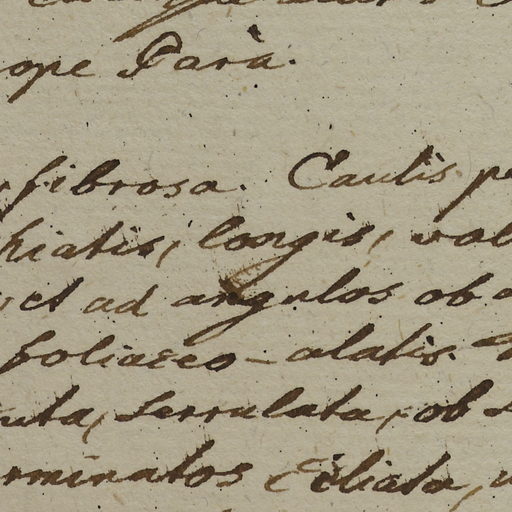 ope Parà.
fibrosa. Caulis
hiatis, longis,
et ad angulos ob
foliaceo-alatis.
uta, serrulata, ob
rminatos ciliata,